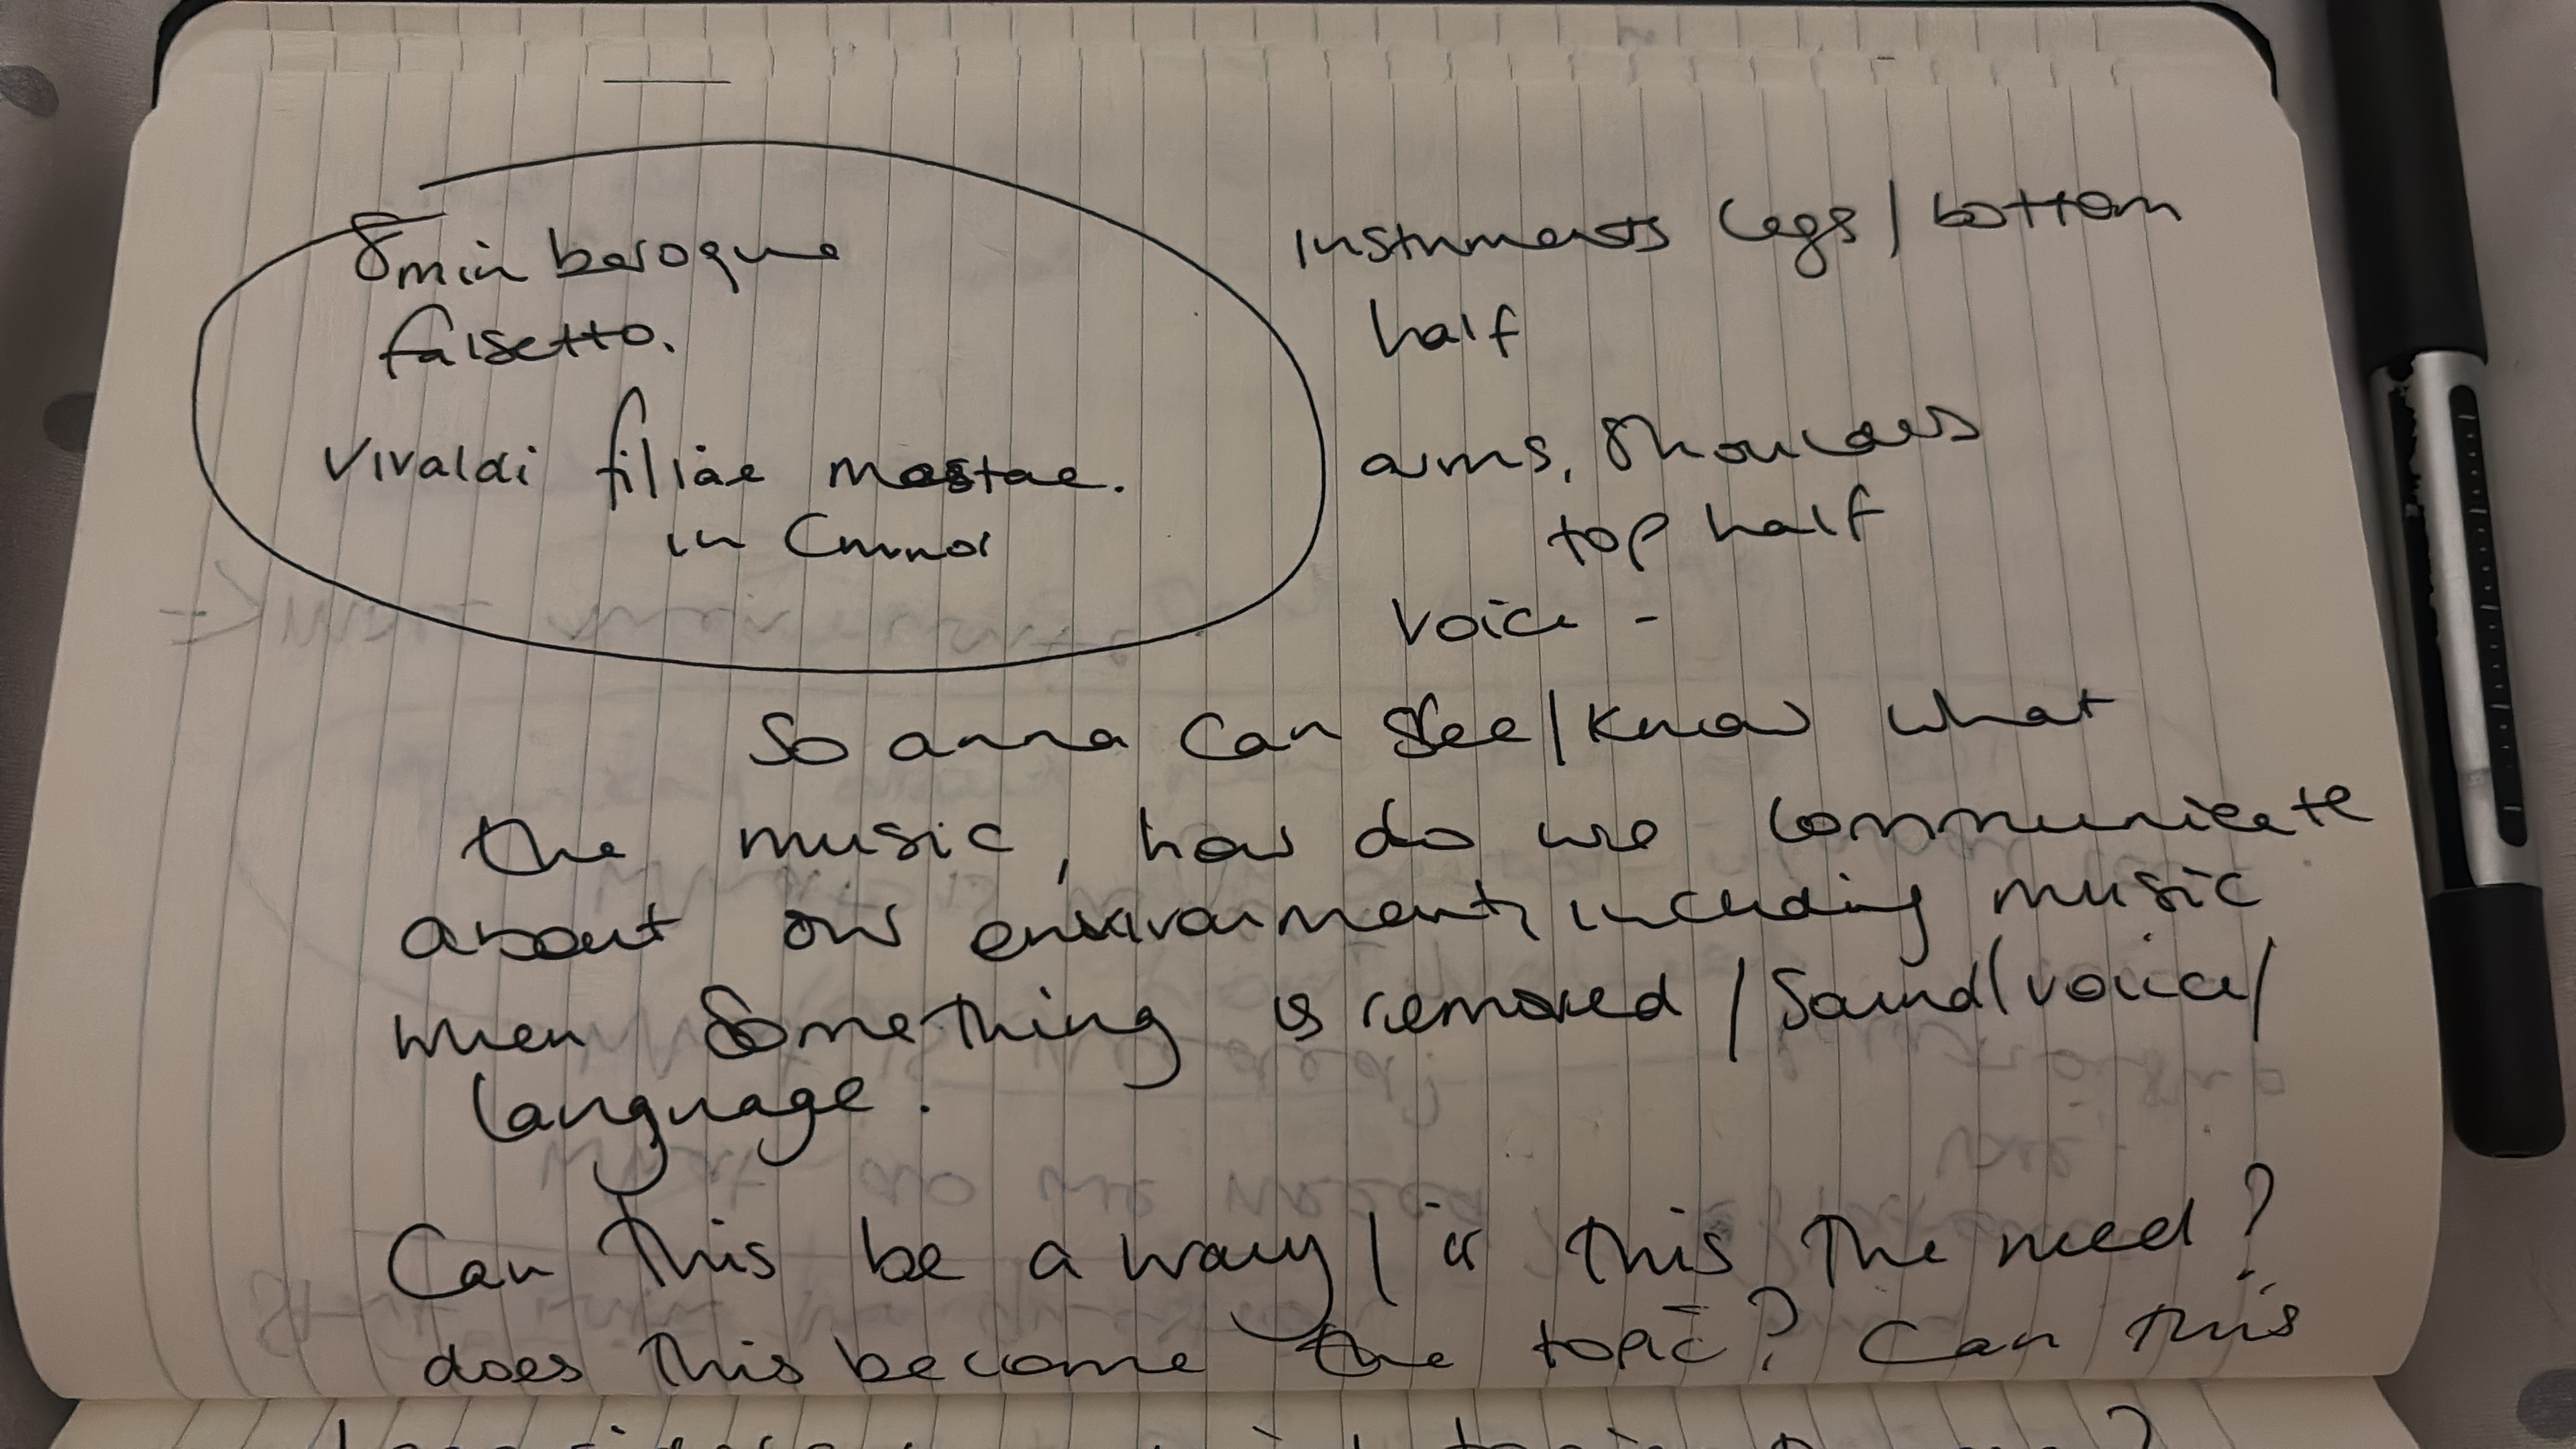 8min baroque
falsetto.
Vivaldi filiae mastae.
in Cminor
Instruments legs / bottom
half
arms, shoulders
top half
voice -
So anna can see / know what
the music, how do we communicate
about our environment, including music
when something is removed / Sound / voice /
language.
Can this be a way / is this the need?
does this become the topic? Can this